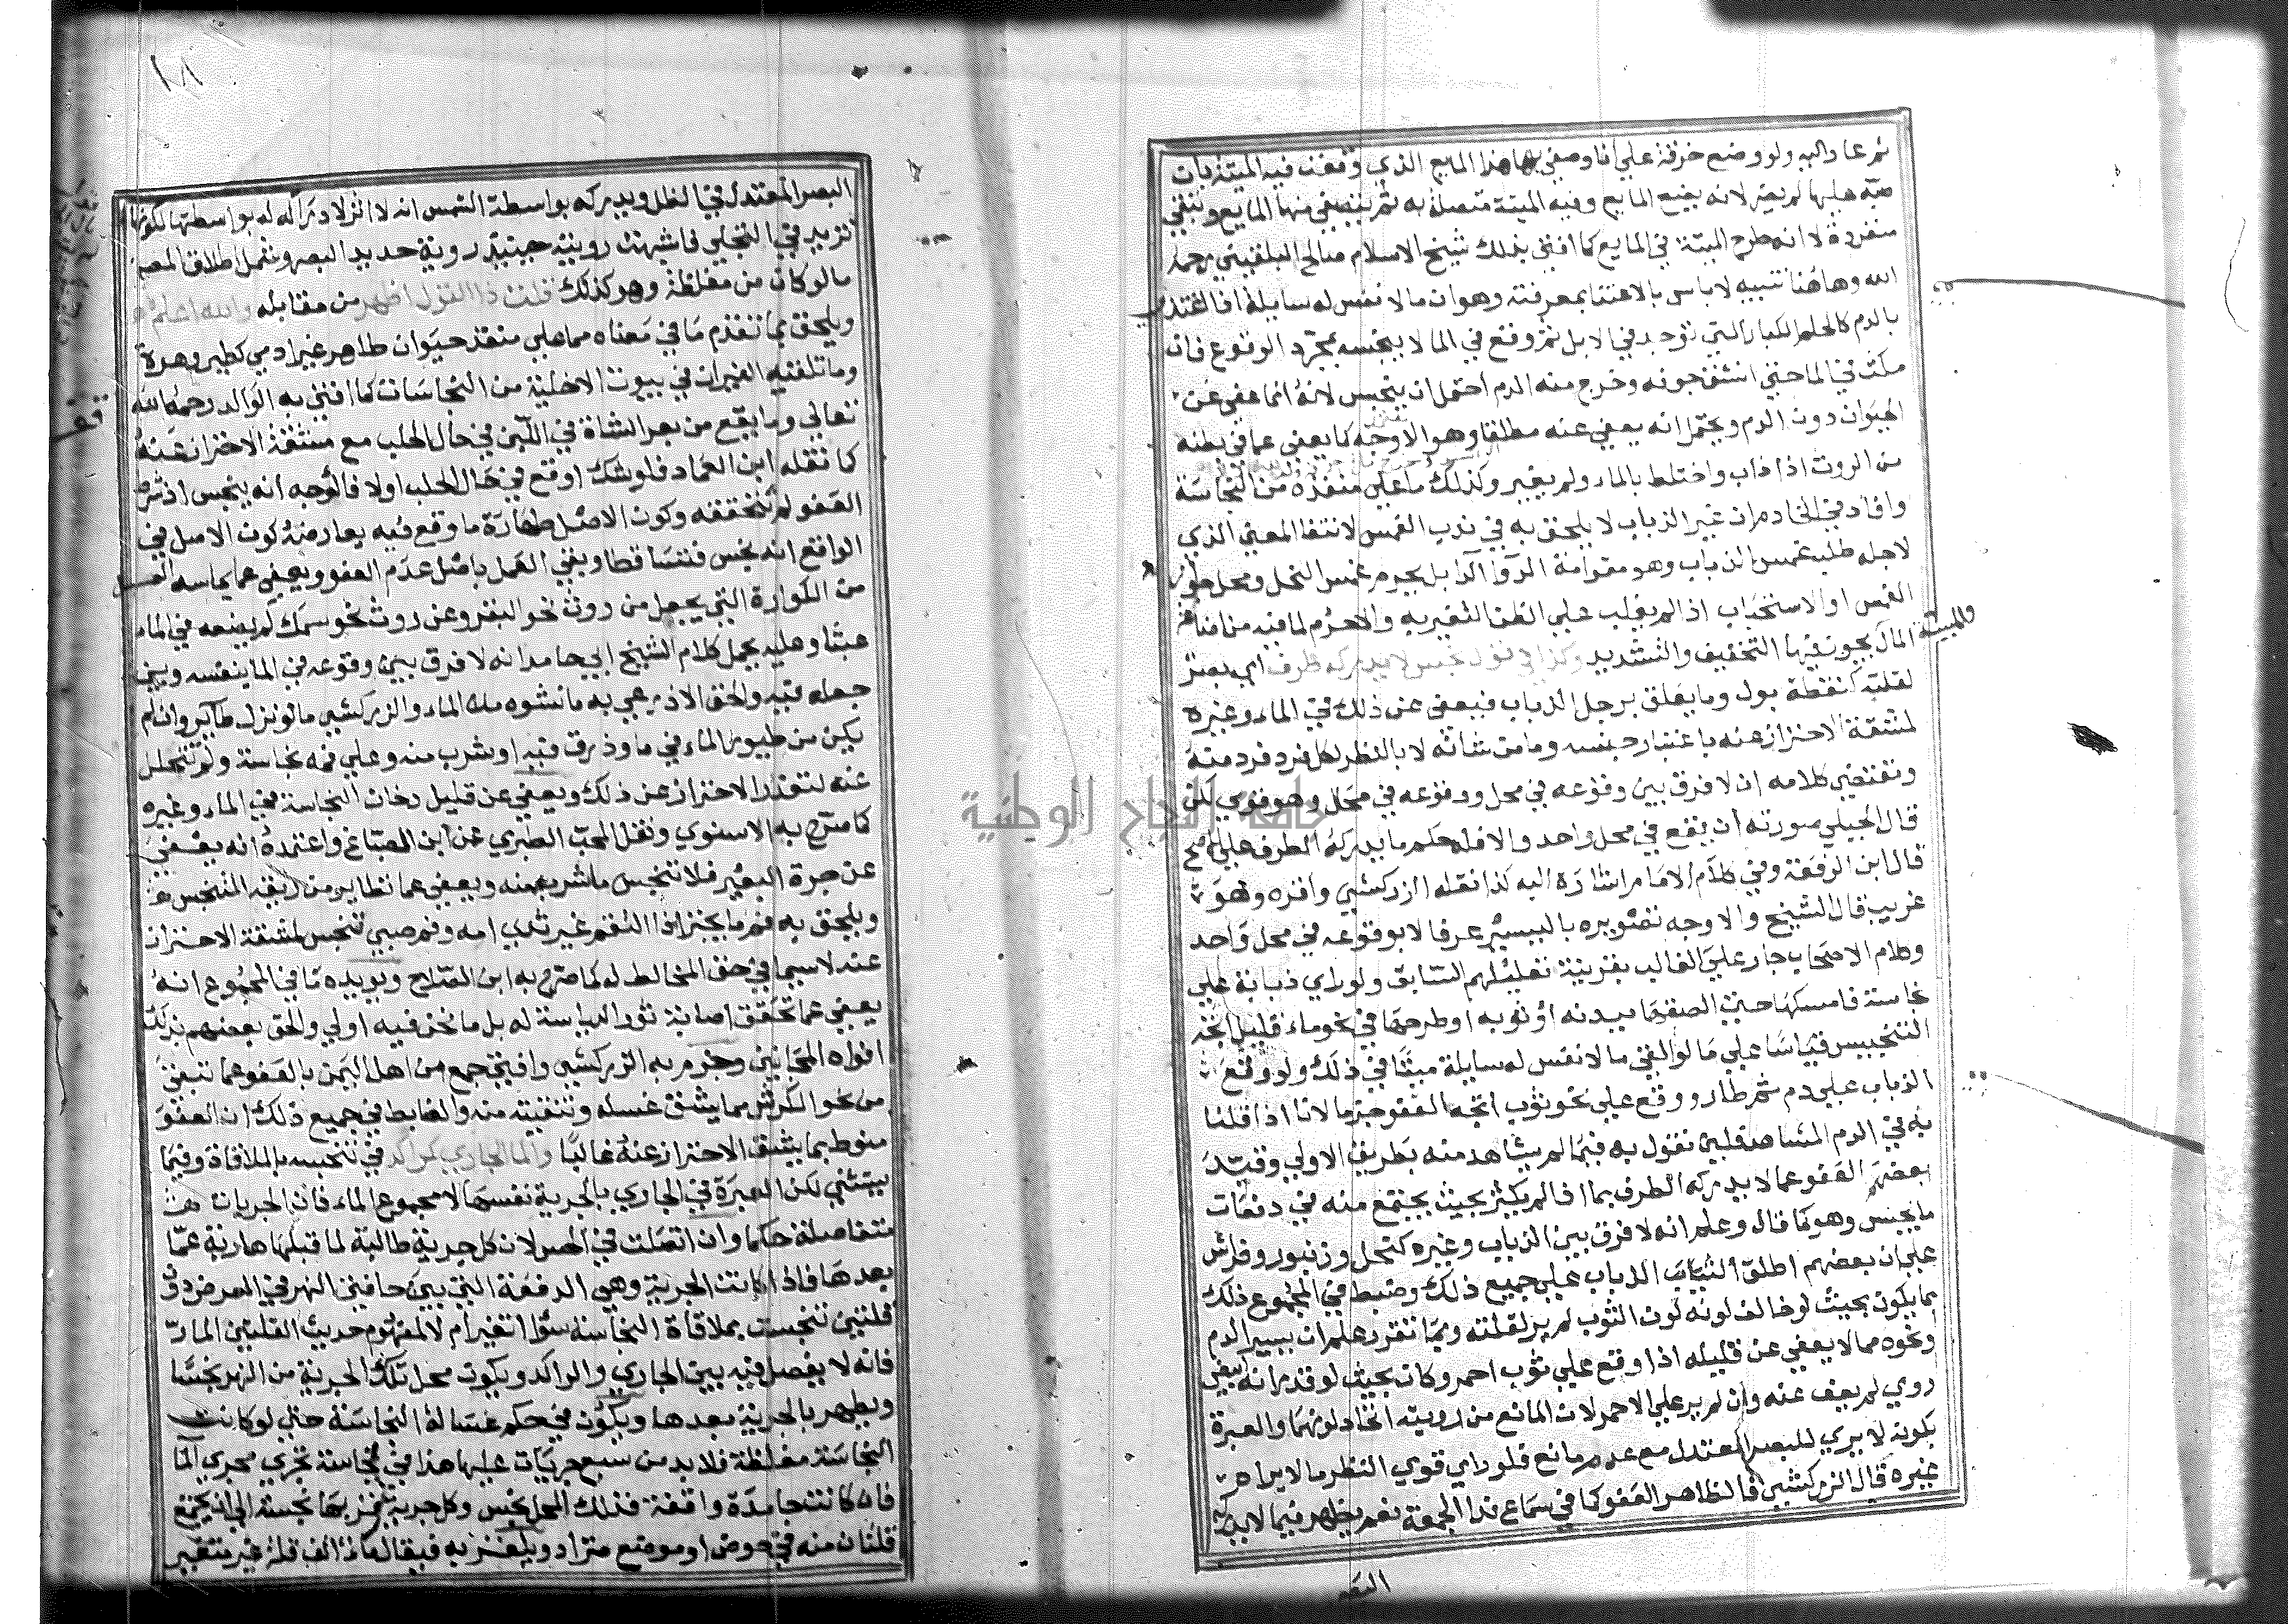 ثم عاد اليه ولو وضع خرقة علي انا وصفي بها هذا المايع الذي وقعت فيه الميتة بان
صبه عليها لم يضر لانه يضع المايع وفيه الميتة متصلة به ثم يتصفي منها المايع وتبقي
منفردة لا انه طرح الميتة في المايع كما افتي بذلك شيخ الاسلام صالح البلقيني رحمه
الله وهاهنا تنبيه لا باس بالاعتنا بمعرفته وهو ان ما لا نفس له سايلة اذا اغتذي
بالدم كالحلم الكبار التي توجد في الابل ثم وقع في الما لا ينجسه بمجرد الوقوع فان
مكث في الما حتي انشق جوفه وخرج منه الدم احتمل ان ينجس لانه انما عفي عن
الحيوان دون الدم ويحتمل انه يعفي عنه مطلقا وهو الاوجه كما يعفي عما في بطنه
من الروث اذا ذاب واختلط بالماء ولم يغير وكذلك ما علي منفذه من النجاسة
وافاد في الخادم ان غير الذباب لا يلحق به في ندب الغمس لانتفا المعني الذي
لاجله طلب غمس الذباب وهو مقاومة الدوا الدا بل يحرم غمس النحل ومحل جواز
الغمس او الاستحباب اذا لم يغلب علي الظن التغير به والا حرم لما فيه من اضاعة
المال بجوز فيها التخفيف والتشديد وكذا في قول نجس لا يدركه طرف اي بصر
لقلته كنقطة بول وما يعلق برجل الذباب فيعفي عن ذلك في الماء وغيره
لمشقة الاحتراز عنه باعتبار جنسه وما من شانه لا بالنظر لكل فرد فرد منه
وتقتضي كلامه ان لا فرق بين وقوعه في محل ووقوعه في محال وهو قوي لكن
قال الجيلي صورته ان يقع في محل واحد والا فله حكم ما يدركه الطرف علي الاصح
قال ابن الرفعة وفي كلام الامام اشارة اليه كذا نقله الزركشي واقره وهو
غريب قال الشيخ والاوجه تصويره باليسير عرفا لا بوقوعه في محل واحد
وكلام الاصحاب جار علي الغالب بقرينة تعليلهم السابق ولو راي ذبابة علي
نجاسة فامسكها حتي الصقها ببدنه او ثوبه او طرحها في نحو ماء قليل اتجه
التنجيس قياسا علي ما لو القي ما لا نفس له سايلة ميتا في ذلك ولو وقع
الذباب علي دم ثم طار ووقع علي نحو ثوب اتجه العفو جزما لانا اذا قلنا
به في الدم المشاهد فلان نقول به فيما لم يشاهد منه بطريق الاولي وقيد
بعضهم العفو عما لا يدركه الطرف بما اذا لم يكثر بحيث يجتمع منه في دفعات
ما يحس وهو كما قال وعلم انه لا فرق بين الذباب وغيره كنحل وزنبور وفراش
علي ان بعضهم اطلق الذباب علي جميع ذلك وضبط في المجموع ذلك
بما يكون بحيث لو خالف لونه لون الثوب لم ير لقلته وبما تقرر علم ان يسير الدم
ونحوه مما لا يعفي عن قليله اذا وقع علي ثوب احمر وكان بحيث لو قدر انه ابيض
روي لم يعف عنه وان لم ير علي الاحمر لان المانع من رويته اتحاد لونهما والعبرة
بكونه لا يري للبصر المعتدل مع عدم مانع فلو راي قوي النظر ما لا يراه
غيره قال الزركشي فالظاهر العفو كما في سماع ندا الجمعة نعم يظهر فيما لا يدركه
البصر
١٨
البصر المعتدل في الظل ويدركه بواسطة الشمس انه لا اثر لادراكه له بواسطتها لكونها
تزيد في التجلي فاشبهت رويته حينئذ روية حديد البصر وشمل اطلاق المصنف
ما لو كان من مغلظة وهو كذلك قلت ذا القول اظهر من مقابله والله اعلم
ويلحق بما تقدم ما في معناه مما علي منفذ حيوان طاهر غير ادمي كطير وهرة
وما تلقيه الفيران في بيوت الاخلية من النجاسات كما افتي به الوالد رحمه الله
تعالي وما يقع من بعر الشاة في اللبن في حال الحلب مع مشقة الاحتراز عنه
كما نقله ابن العماد فلو شك اوقع في حال الحلب اولا فالاوجه انه ينجس اذ شرط
العفو لم نتحققه وكون الاصل طهارة ما وقع فيه يعارضه كون الاصل في
الواقع انه نجس فتساقطا وبقي العمل باصل عدم العفو ويعفي عما يماسه العسل
من الكوارة التي يجعل من روث نحو البقر وعن روث نحو سمك لم يضعه في الماء
عبثا وعليه يحمل كلام الشيخ ابي حامد انه لا فرق بين وقوعه في الما بنفسه وبين
جعله فيه والحق الاذرعي به ما نشوه من الماء والزركشي ما لو نزل طاير وان لم
يكن من طيور الماء في ما وذرق فيه او شرب منه وعلي فمه نجاسة ولم تتحلل
عنه لتعذر الاحتراز عن ذلك ويعفي عن قليل دخان النجاسة في الماء وغيره
كما صرح به الاسنوي ونقل المحب الطبري عن ابن الصباغ واعتمده انه يعفي
عن جرة البعير فلا تنجس ما شرب منه ويعفي عما تطاير من ريقه المتنجس
ويلحق به فم ما يجتر اذا التقم غير ثدي امه وفم صبي تنجس لمشقة الاحتراز
عنه لا سيما في حق المخالط له كما صرح به ابن الصلاح ويويده ما في المجموع انه
يعفي عما تحقق اصابة ثور الدياسة له بل ما نحن فيه اولي والحق بعضهم بذلك
افواه المجانين وجزم به الزركشي وافتي جمع من اهل اليمن بالعفو عما تبقي
من نحو الكرش مما يشق غسله وتنقيته منه والضابط في جميع ذلك ان العفو
منوط بما يشق الاحتراز عنه غالبا والما الجاري كراكد في تنجسه بالملاقاة وفيما
يستثني لكن العبرة في الجاري بالجرية نفسها لا مجموع الماء فان الجريات
متفاصلة حكما وان اتصلت في الحس لان كل جرية طالبة لما قبلها هاربة عما
بعدها فاذا كانت الجرية وهي الدفعة التي بين حافتي النهر في العرض دون
قلتين تنجست بملاقاة النجاسة سوا تغير ام لا لمفهوم حديث القلتين المار
فانه لا يفصل فيه بين الجاري والراكد ويكون محل تلك الجرية من النهر نجسا
ويطهر بالجرية بعدها ويكون في حكم غسالة النجاسة حتي لو كانت
النجاسة مغلظة فلا بد من سبع جريات عليها هذا في نجاسة تجري بجري الما
فان كانت جامدة واقفة فذلك المحل نجس وكل جرية تمر بها نجسة الي ان يجتمع
قلتان منه في حوض او موضع متراد ويلغز به فيقال ماء الف قلة غير متغير